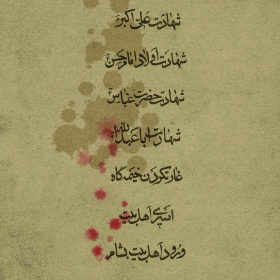 شهادت علی اکبر
شهادت اولاد امام حسن
شهادت حضرت عباس
شهادت اباعبدلله
غارت کردن خیمه گاه
اسیری اهل بیت
ورود اهل بیت بشام